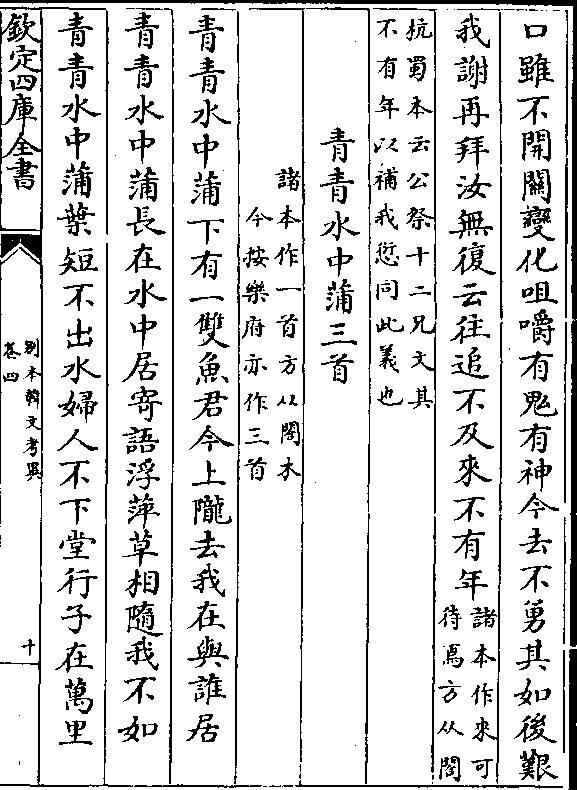 口雖不開關變化咀嚼有鬼有神今去不勇其如後艱
我謝再拜汝無復云往追不及來不有年諸本作來可
待焉方从閣
抗蜀本云公祭十二兄文其
不有年以補我愆同此義也
青青水中蒲三首
諸本作一首方从閣本
今按樂府亦作三首
青青水中蒲下有一雙魚君今上隴去我在與誰居
青青水中蒲長在水中居寄語浮萍草相隨我不如
青青水中蒲葉短不出水婦人不下堂行子在萬里
欽定四庫全書
别本韓文考異
卷四
十